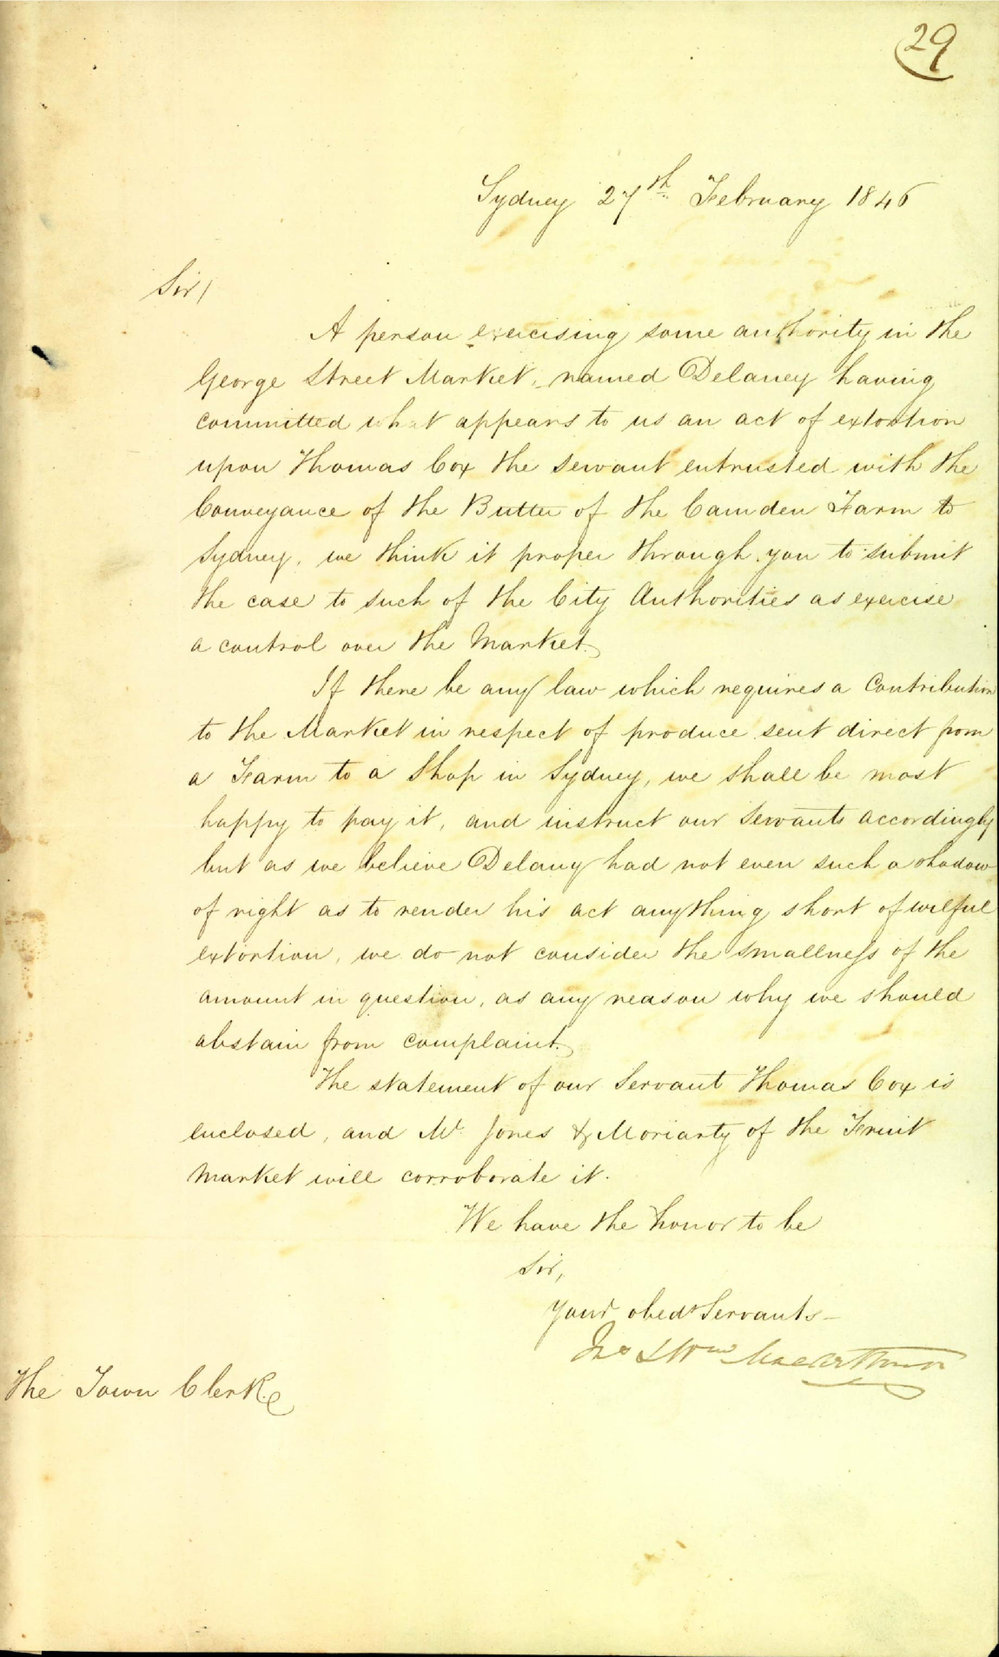 29
Sydney 27th. February 1846
Sir/
A person exercising some authority in the
George Street Market, named Delaney having
committed what appears to us an act of extortion
upon Thomas Cox the servant entrusted with the
Conveyance of the Butter of the Camden Farm to
Sydney, we think it proper through you to submit
the case to such of the City Authorities as exercise
a control over the Market.
If there be any law which requires a Contribution
to the Market in respect of produce sent direct from
a Farm to a Shop in Sydney, we shall be most
happy to pay it, and instruct our Servants accordingly
but as we believe Delany had not even such a shadow
of right as to render his act anything short of wilful
extortion, we do not consider the smallness of the
amount in question, as any reason why we should
abstain from complaint.
The statement of our Servant Thomas Cox is
enclosed, and Mr. Jones & Moriarty of the Fruit
Market will corroborate it.
We have the honor to be
Sir,
Your obedt Servants
Macarthur
The Town Clerk